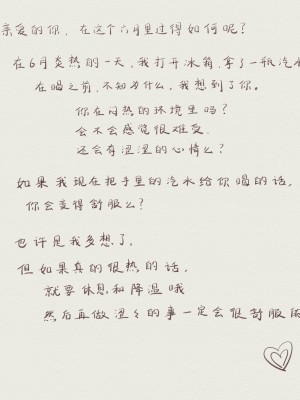 亲爱的你，在这个六月里过得如何呢？
在6月炎热的一天，我打开冰箱，拿了一瓶汽水
在喝之前，不知为什么，我想到了你。
你在闷热的环境里吗？
会不会感觉很难受，
还会有涩涩的心情么？
如果我现在把手里的汽水给你喝的话，
你会变得舒服么？
也许是我多想了，
但如果真的很热的话，
就要休息和降温哦
然后再做涩々的事一定会很舒服的